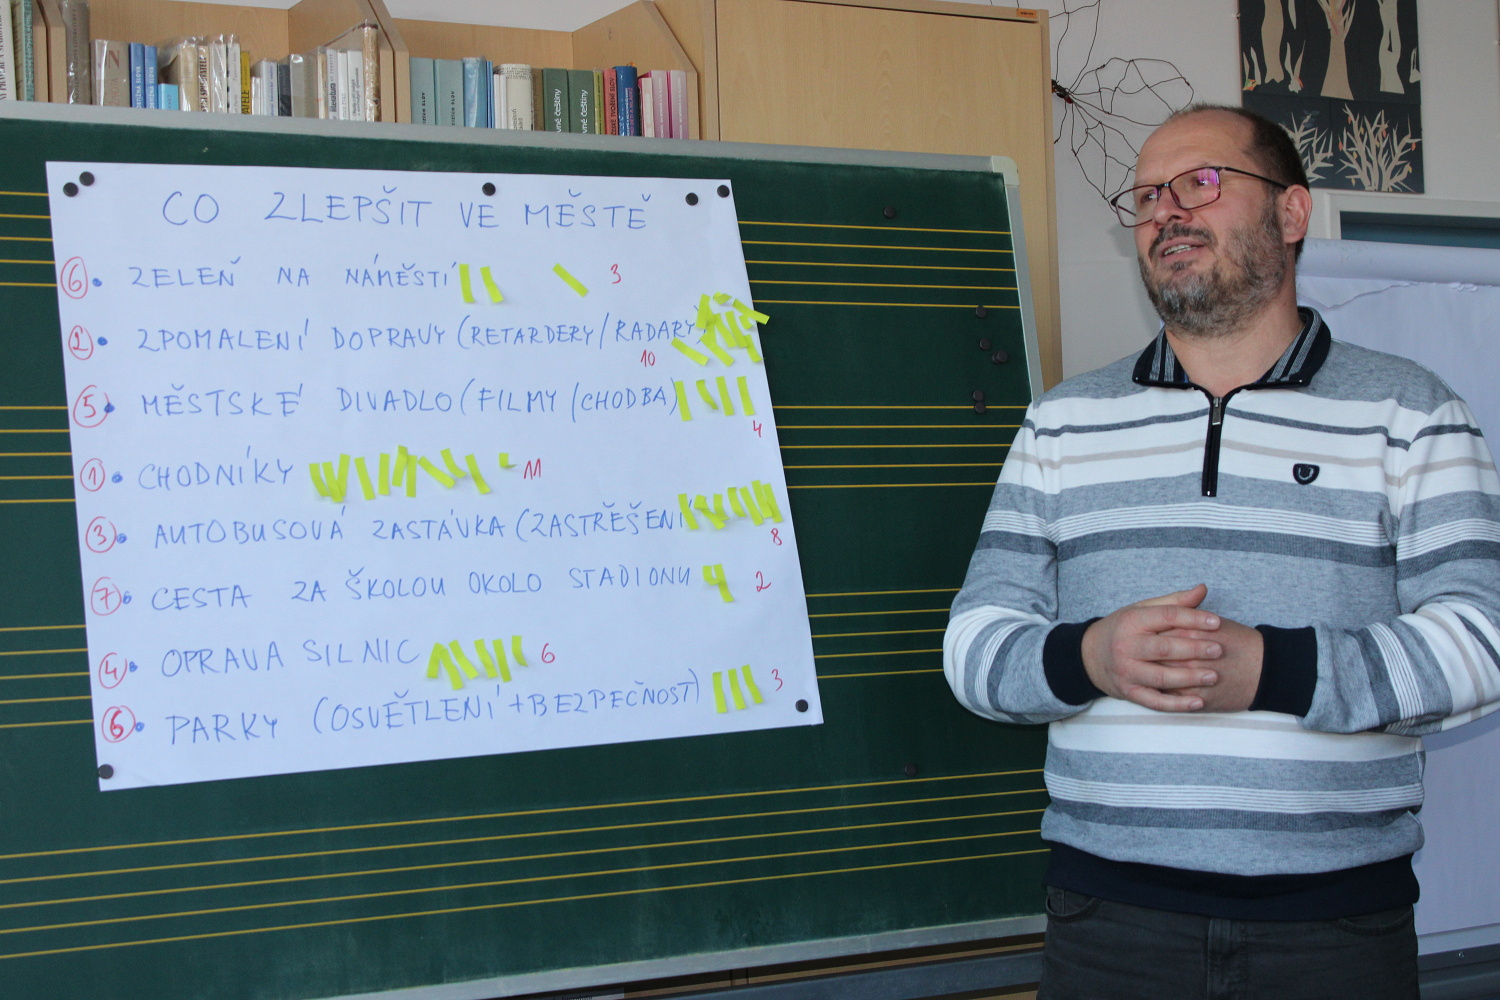 CO ZLEPŠIT VE MĚSTĚ
6 • ZELEŇ NA NÁMĚSTÍ 3
2 • ZPOMALENÍ DOPRAVY (RETARDERY/RADARY) 10
5 • MĚSTSKÉ DIVADLO (FILMY/CHODBA) 4
1 • CHODNÍKY 11
3 • AUTOBUSOVÁ ZASTÁVKA (ZASTŘEŠENÍ 8
7 • CESTA ZA ŠKOLOU OKOLO STADIONU 2
4 • OPRAVA SILNIC 6
6 • PARKY (OSVĚTLENÍ + BEZPEČNOST) 3